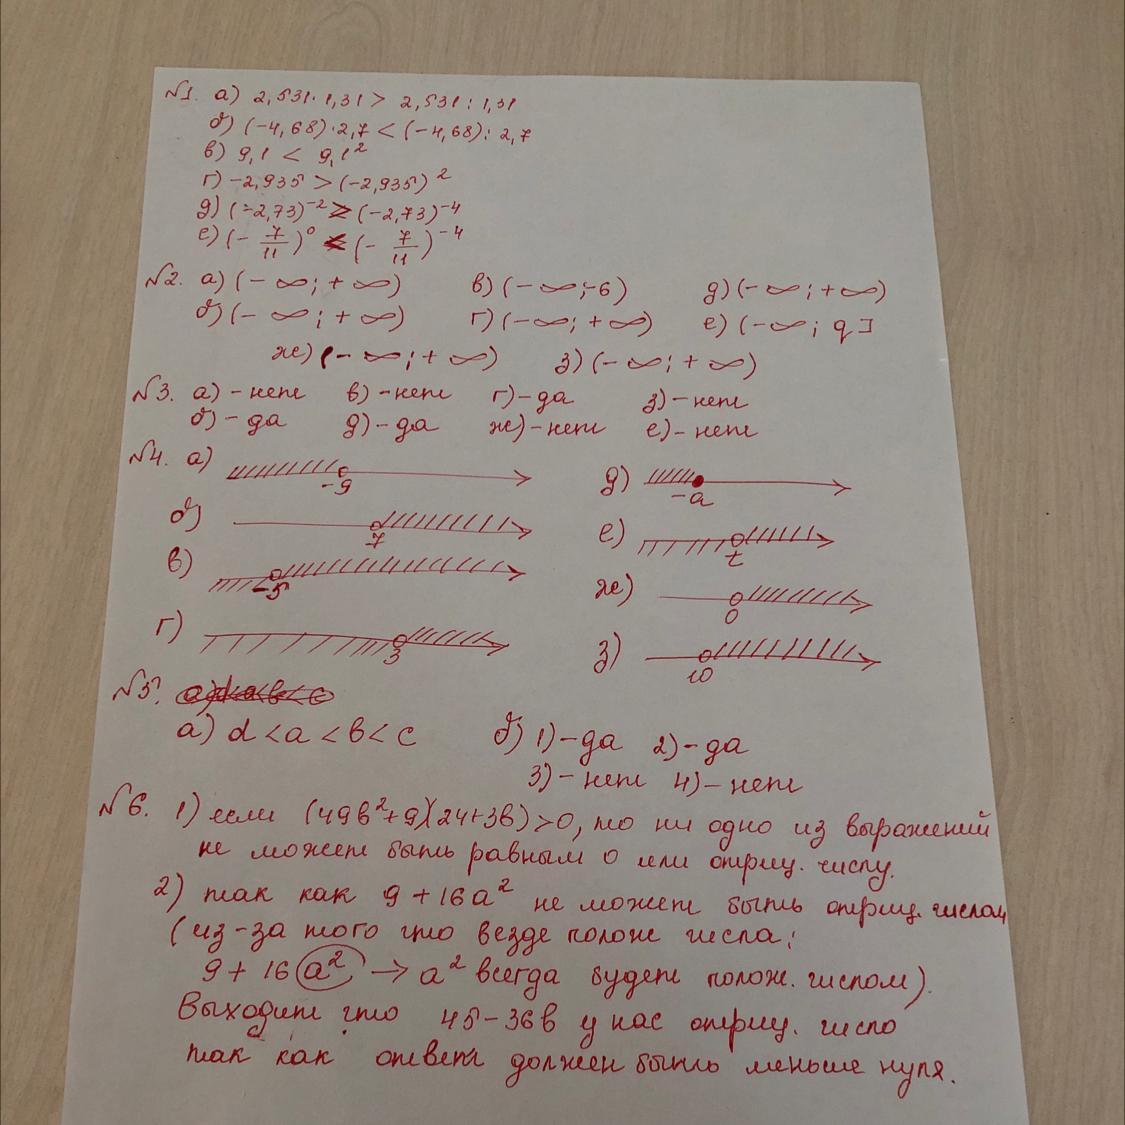 №1. а) 2,531·1,31 > 2,531:1,31
б) (-4,68)·2,7 < (-4,68):2,7
в) 9,1 < 9,1²
г) -2,935 > (-2,935)²
д) (-2,73)⁻² > (-2,73)⁻⁴
е) (-7/11)⁰ < (-7/11)⁻⁴
№2. а) (-∞;+∞) в) (-∞;-6) д) (-∞;+∞)
б) (-∞;+∞) г) (-∞;+∞) е) (-∞; 9]
ж) (-∞;+∞) з) (-∞;+∞)
№3. а) -нет в) -нет г) -да з) -нет
б) -да д) -да ж) -нет е) -нет
№4. а) -9 д) -a
б) 7 е) t
в) -5 ж) 0
г) 3 з) 10
№5.
а) d<a<b<c б) 1)-да 2)-да
3)-нет 4)-нет
№6. 1) если (49b²+9)(24+3b)>0, то ни одно из выражений
не может быть равным 0 или отриц. числу.
2) так как 9+16a² не может быть отриц. числом
(из-за того что везде полож числа;
9+16 a² → a² всегда будет полож. числом).
Выходит что 45-36b у нас отриц. число
так как ответ должен быть меньше нуля.